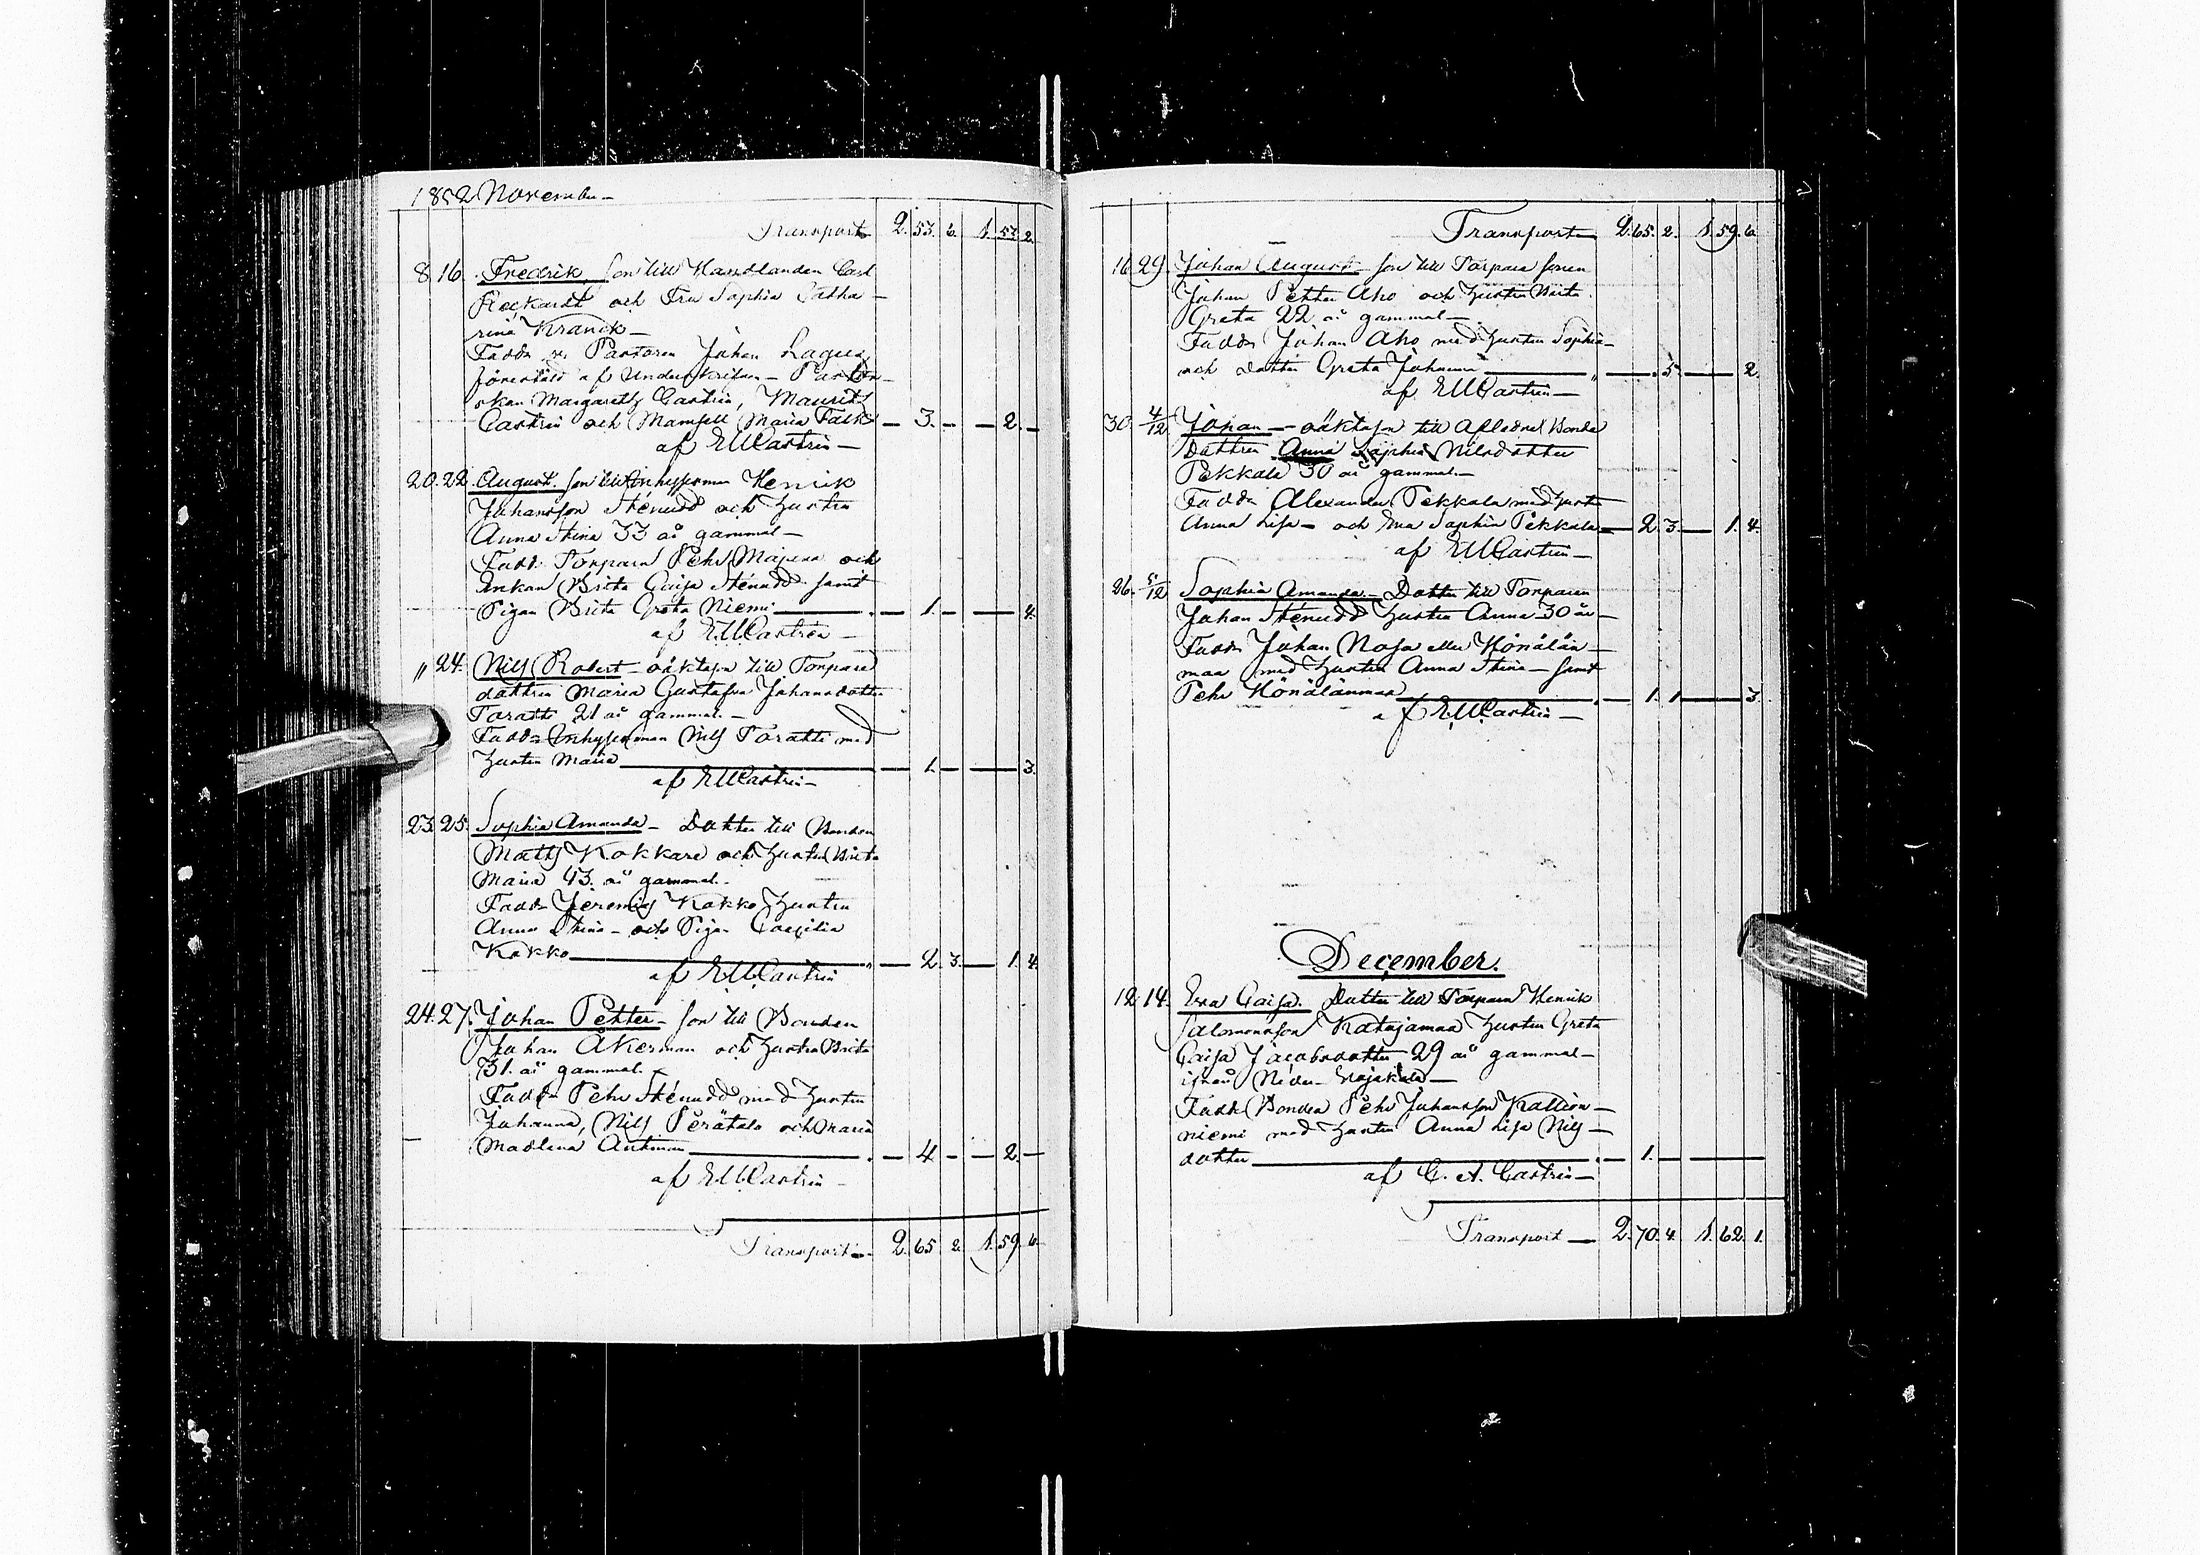 1852 November
Transport 2. 53. 6. 1. 52. 2.
8. 16. Fredrik son till Handlanden Carl
och Fru Sophia Catha-
rina Kranck
Fadd Pastoren Johan Lagus
föreståld af Underskrifven - Pastor-
skan Margareth Castrén, Maurits
Castrén och Mamsell Maria Falck 3. 2.
af E.U.Castrén
20. 22. August. son till Inhyseman Henrik
Johansson Stenudd och hustru
Anna Stina 33 år gammal
Fadd. Torparen Pehr och
Enkan Brita Caisa Stenudd samt
Pigan Brita Greta Niemi 1. 4.
af E.U.Castrén
" 24. Nils Robert oäkta son till Torpare
dottren Maria Gustafva Johansdotter
Toratti 21 år gammal.
Fadd Inhyseman Nils Toratti med
hustru Maria 1. 3.
af E.U.Castrén
23. 25. Sophia Amanda - Dotter till Bonden
Matts Kokkare och hustru Brita
Maria 43. år gammal.
Fadd Jeremias Kokko hustru
Anna Stina - och Pigan Caecilia
Kokko 2. 3. 1. 4.
af E.U.Castrén
24. 27. Johan Petter - son till Bonden
Johan Åkerman och hustru Brita
31. år gammal.
Fadd Pehr Stenudd med hustru
Johanna, Nils Perätalo och Maria
Madlena Antman 4 2.
af E.U.Castrén
Transport 2. 65. 2. 1. 59. 6.
Transport 2. 65. 2. 1. 59. 6.
16. 29. Johan August son till Torpare sonen
Johan Petter Aho och hustru Brita
Greta 22 år gammal
Fadd Johan Aho med hustru Sophia
och dotter Greta Johanna 5. 2.
af E.U.Castrén
30. 4/12 Johan - oäkta son till Aflidne Bonde
Dottren Anna Sophia Nilsdotter
Pekkala 30 år gammal
Fadd Alexander Pekkala med hustr
Anna Lisa - och Eva Sophia Pekkala 2. 3. 1. 4.
af E.U.Castrén
26. 5/12 Sophia Amanda - Dotter till Torparen
Johan Stenudd hustru Anna 30 år
Fadd Johan eller Könälän-
maa med hustru Anna Stina - samt
Pehr Könälänmaa 1. 1 3.
af E.U.Castrén
December.
12. 14. Eva Caisa. Dotter till Torparen Henrik
Salomonsson Katajamaa hustru Greta
Caisa Jacobsdotter 29 år gammal
ifrån Neder-
Fadd Bonden Pehr Johansson Kallion-
niemi med hustru Anna Lisa Nils-
dotter 1.
af C. A. Castrén
Transport 2. 70. 4. 1. 62. 1.